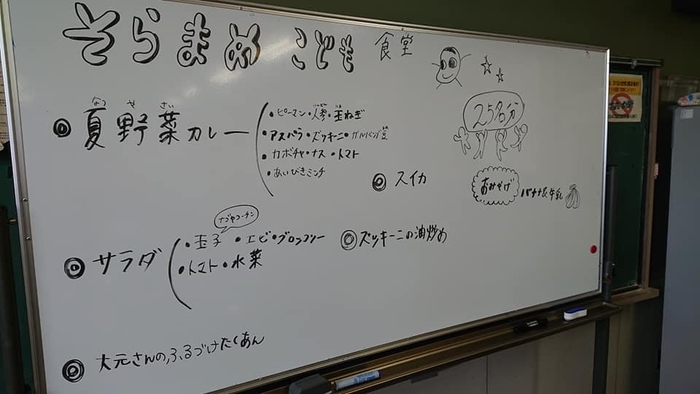 そらまめ こども 食堂
◎ 夏野菜カレー
なつ や さい
・ピーマン・人参・玉ねぎ
・アスパラ・ズッキーニ・ガルバンゾ豆
・カボチャ・ナス・トマト
・あいびきミンチ
25名分
◎ スイカ
おみやげ
バナナ 牛乳
◎ サラダ
ナゴヤコーチン
・玉子 ・エビ・ブロッコリー
・トマト・水菜
◎ ズッキーニの油炒め
◎ 大元さんのふるづけたくあん